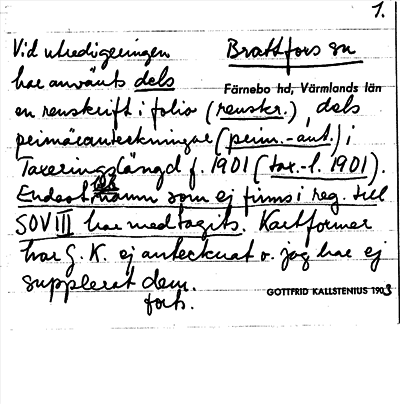 1.
Vid utredigeringen Brattfors sn
har använts dels Färnebo hd, Värmlands län
en renskrift i folio (renskr.), dels
primäranteckningar (prim.-ant.) i
Taxeringslängd f. 1901 (tax.-l. 1901).
Endast de namn som ej finns i reg. till
SOV III har medtagits. Kartformer
har G. K. ej antecknat o. jag har ej
supplerat dem.
forts.
GOTTFRID KALLSTENIUS 1903